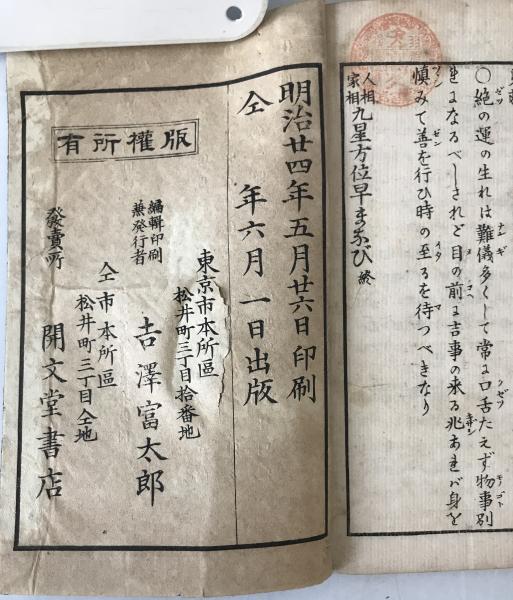 ○絶の運の生れは難儀多くして常に口舌たえず物事別
きになるべしされど目の前に吉事の来る兆あれバ身を
慎みて善を行ひ時の至るを待つべきなり
人相家相九星方位早まなび 終
明治廿四年五月廿六日印刷
仝 年六月一日出版
版權所有
東京市本所區
松井町三丁目拾番地
編輯印刷兼發行者 吉澤富太郎
仝市本所區
松井町三丁目仝地
發賣所 開文堂書店